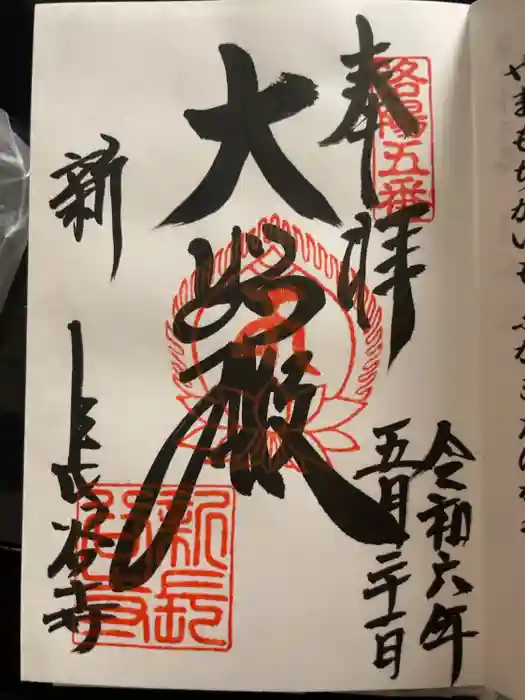 洛陽五番
奉拝
令和六年
五月二十一日
大悲殿
新長谷寺
新長
谷寺